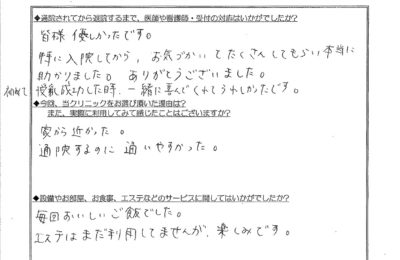 ◆通院されてから退院するまで、医師や看護師・受付の対応はいかがでしたか?
皆様 優しかったです。
特に入院してから、お気づかいてたくさんしてもらい本当に
助かりました。ありがとうございました。
初めて 授乳成功した時、一緒に喜んでくれてうれしかったです。
◆今回、当クリニックをお選び頂いた理由は?
また、実際に利用してみて感じたことはございますか?
家から近かった。
通院するのに 通いやすかった。
◆設備やお部屋、お食事、エステなどのサービスに関してはいかがでしたか?
毎回おいしいご飯でした。
エステはまだ利用してませんが、楽しみです。